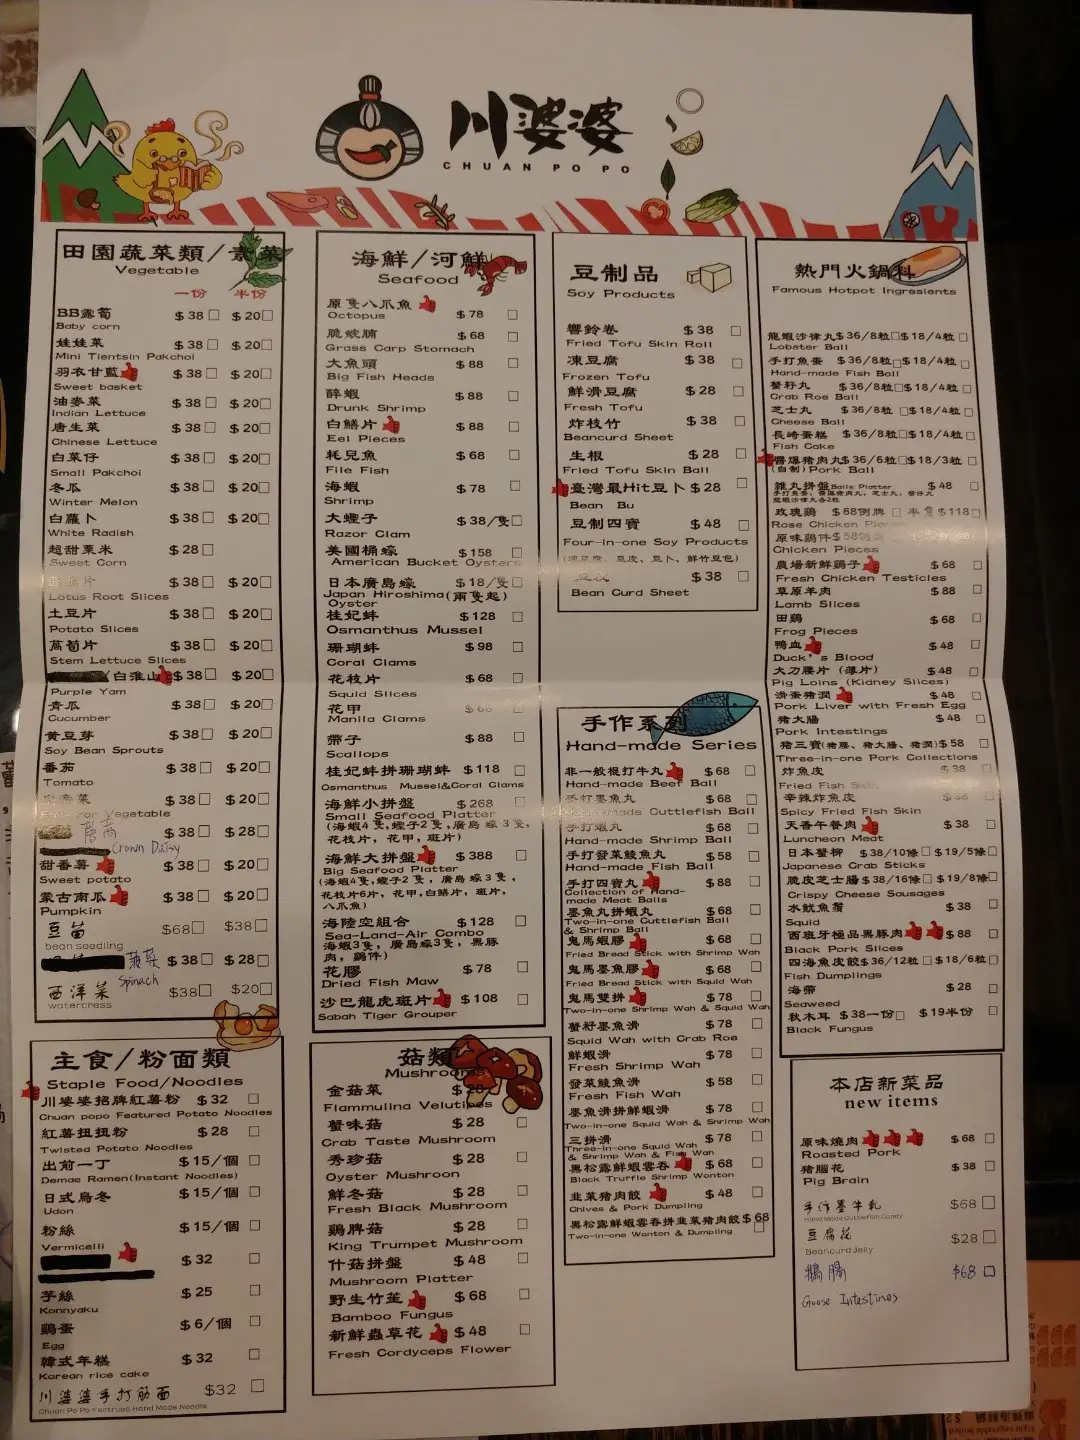 川婆婆
CHUAN PO PO
田園蔬菜類/素菜
Vegetable
一份 半份
BB露筍 $38□ $20□
Baby corn
娃娃菜 $38□ $20□
Mini Tientsin Pakchoi
羽衣甘藍 $38□ $20□
Sweet basket
油麥菜 $38□ $20□
Indian Lettuce
唐生菜 $38□ $20□
Chinese Lettuce
白菜仔 $38□ $20□
Small Pakchoi
冬瓜 $38□ $20□
Winter Melon
白蘿卜 $38□ $20□
White Radish
超甜粟米 $28□
Sweet Corn
片 $38□ $20□
Lotus Root Slices
土豆片 $38□ $20□
Potato Slices
萵筍片 $38□ $20□
Stem Lettuce Slices
/白淮山 $38□ $20□
Purple Yam
青瓜 $38□ $20□
Cucumber
黄豆芽 $38□ $20□
Soy Bean Sprouts
番茄 $38□ $20□
Tomato
菜 $38□ $20□
Vegetable
$38□ $28□
Crown Daisy
甜番薯 $38□ $20□
Sweet potato
蒙古南瓜 $38□ $20□
Pumpkin
豆苗 $68□ $38□
bean seedling
菠菜 $38□ $28□
Spinach
西洋菜 $38□ $20□
watercress
主食/粉面類
Staple Food/Noodles
川婆婆招牌紅薯粉 $32 □
Chuan popo Featured Potato Noodles
紅薯扭扭粉 $28 □
Twisted Potato Noodles
出前一丁 $15/個 □
Demae Ramen(Instant Noodles)
日式烏冬 $15/個 □
Udon
粉絲 $15/個 □
Vermicelli
$32 □
芋絲 $25 □
Konnyaku
鷄蛋 $6/個 □
Egg
韓式年糕 $32 □
Korean rice cake
川婆婆手打筋面 $32 □
Chuan Po Po Featrued Hand Made Noodle
海鮮/河鮮
Seafood
原隻八爪魚 $78 □
Octopus
脆鯇腩 $68 □
Grass Carp Stomach
大魚頭 $88 □
Big Fish Heads
醉蝦 $88 □
Drunk Shrimp
白鱔片 $88 □
Eel Pieces
耗兒魚 $68 □
File Fish
海蝦 $78 □
Shrimp
大蟶子 $38/隻□
Razor Clam
美國桶蠔 $158 □
American Bucket Oysters
日本廣島蠔 $18/隻□
Japan Hiroshima(兩隻起)
Oyster
桂妃蚌 $128 □
Osmanthus Mussel
珊瑚蚌 $98 □
Coral Clams
花枝片 $68 □
Squid Slices
花甲 $68 □
Manila Clams
帶子 $88 □
Scallops
桂妃蚌拼珊瑚蚌 $118 □
Osmanthus Mussel&Coral Clams
海鮮小拼盤 $268 □
Small Seafood Platter
(海蝦4隻,蟶子2隻,廣島蠔3隻,
花枝片,花甲,斑片)
海鮮大拼盤 $388 □
Big Seafood Platter
(海蝦4隻,蟶子2隻,廣島蠔3隻,
花枝片6片,花甲,白鱔片,斑片,
八爪魚)
海陸空組合 $128 □
Sea-Land-Air Combo
海蝦3隻,廣島蠔3隻,黑豚
肉,鷄件)
花膠 $78 □
Dried Fish Maw
沙巴龍虎斑片 $108 □
Sabah Tiger Grouper
菇類
Mushrooms
金菇菜 $28 □
Flammulina Velutipes
蟹味菇 $28 □
Crab Taste Mushroom
秀珍菇 $28 □
Oyster Mushroon
鮮冬菇 $28 □
Fresh Black Mushroom
鷄脾菇 $28 □
King Trumpet Mushroom
什菇拼盤 $48 □
Mushroom Platter
野生竹笙 $68 □
Bamboo Fungus
新鮮蟲草花 $48 □
Fresh Cordyceps Flower
豆制品
Soy Products
響鈴卷 $38 □
Fried Tofu Skin Roll
凍豆腐 $38 □
Frozen Tofu
鮮滑豆腐 $28 □
Fresh Tofu
炸枝竹 $38 □
Beancurd Sheet
生根 $28 □
Fried Tofu Skin Ball
臺灣最Hit豆卜 $28 □
Bean Bu
豆制四寶 $48 □
Four-in-one Soy Products
(凍豆腐、豆皮、豆卜、鮮竹豆包)
$38 □
Bean Curd Sheet
手作系列
Hand-made Series
非一般棍打牛丸 $68 □
Hand-made Beef Ball
手打墨魚丸 $68 □
Hand-made Cuttlefish Ball
手打蝦丸 $68 □
Hand-made Shrimp Ball
手打發菜鯪魚丸 $58 □
Hand-made Fish Ball
手打四寶丸 $88 □
Collection of Hand-
made Meat Balls
墨魚丸拼蝦丸 $68 □
Two-in-one Cuttlefish Ball
& Shrimp Ball
鬼馬蝦膠 $68 □
Fried Bread Stick with Shrimp Wah
鬼馬墨魚膠 $68 □
Fried Bread Stick with Squid Wah
鬼馬雙拼 $78 □
Two-in-one Shrimp Wah & Squid Wah
蟹籽墨魚滑 $78 □
Squid Wah with Crab Roe
鮮蝦滑 $78 □
Fresh Shrimp Wah
發菜鯪魚滑 $58 □
Fresh Fish Wah
墨魚滑拼鮮蝦滑 $78 □
Two-in-one Squid Wah & Shrimp Wah
三拼滑 $78 □
Three-in-one Squid Wah
& Shrimp Wah & Fish Wah
黑松露鮮蝦雲吞 $68 □
Black Truffle Shrimp Wonton
韭菜猪肉餃 $48 □
Chives & Pork Dumpling
黑松露鮮蝦雲吞拼韭菜猪肉餃 $68 □
Two-in-one Wanton & Dumpling
熱門火鍋料
Famous Hotpot Ingresients
龍蝦沙律丸$36/8粒□$18/4粒 □
Lobster Ball
手打魚蛋 $36/8粒□$18/4粒 □
Hand-made Fish Ball
蟹籽丸 $36/8粒□$18/4粒 □
Crab Roe Ball
芝士丸 $36/8粒□$18/4粒 □
Cheese Ball
長崎蛋糕 $36/8粒□$18/4粒 □
Fish Cake
醬爆猪肉丸$36/6粒□$18/3粒 □
(自制)Pork Ball
雜丸拼盤Balls Platter $48 □
手打魚蛋,醬爆猪肉丸,芝士丸,蟹仔丸
龍蝦沙律丸各2粒
玫瑰鷄 $68例牌 □ 半隻$118□
Rose Chicken Pieces
原味鷄件$58例牌
Chicken Pieces
農場新鮮鷄子 $68 □
Fresh Chicken Testicles
草原羊肉 $88 □
Lamb Slices
田鷄 $68 □
Frog Pieces
鴨血 $48 □
Duck's Blood
大刀腰片(薄片) $48 □
Pig Loins (Kidney Slices)
滑蛋猪潤 $48 □
Pork Liver with Fresh Egg
猪大腸 $48 □
Pork Intestings
猪三寶(猪腰、猪大腸、猪潤)$58 □
Three-in-one Pork Collections
炸魚皮 $38 □
Fried Fish Skin
辛辣炸魚皮 $38 □
Spicy Fried Fish Skin
天香午餐肉 $38 □
Luncheon Meat
日本蟹柳 $38/10條□ $19/5條□
Japanese Crab Sticks
脆皮芝士腸$38/16條□ $19/8條□
Crispy Cheese Sausages
水魷魚鬚 $38 □
Squid
西班牙極品黑豚肉 $88 □
Black Pork Slices
四海魚皮餃$36/12粒□$18/6粒□
Fish Dumplings
海帶 $28 □
Seaweed
秋木耳 $38一份□ $19半份 □
Black Fungus
本店新菜品
new items
原味燒肉 $68 □
Roasted Pork
猪腦花 $38 □
Pig Brain
手作墨牛軋 $68□
Hand Made Cuttlefish Candy
豆腐花 $28□
Beancurd Jelly
鵝腸 $68 □
Goose Intestines